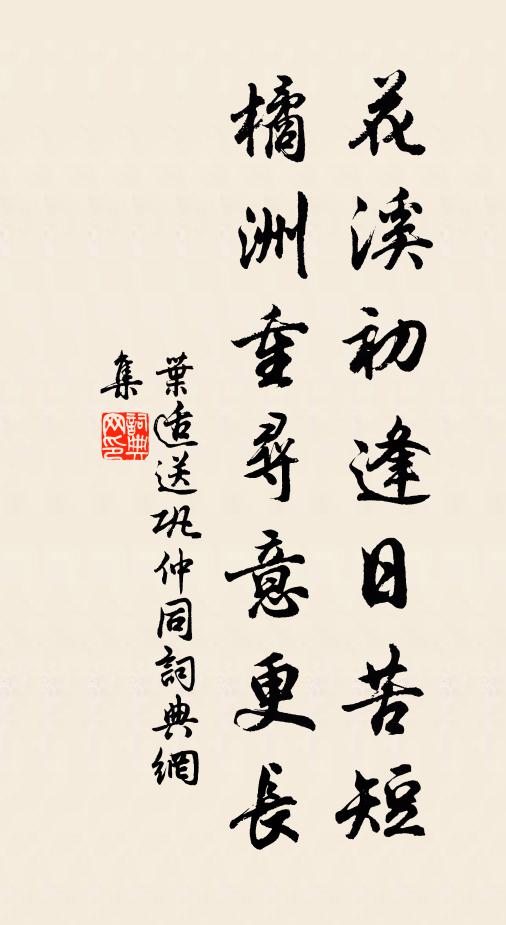 花溪初逢日苦短
橘洲重尋意更長
葉適送鞏仲同詞典網
集
詞典
网印